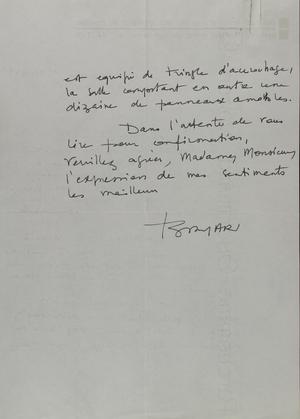 est equipé de tringle d'accrochage,
la salle comportant en outre une
dizaine de panneaux amovibles.
Dans l'attente de vous
lire pour confirmation,
Veuillez agréer, Madame, Monsieur,
l'expression de mes sentiments
les meilleurs